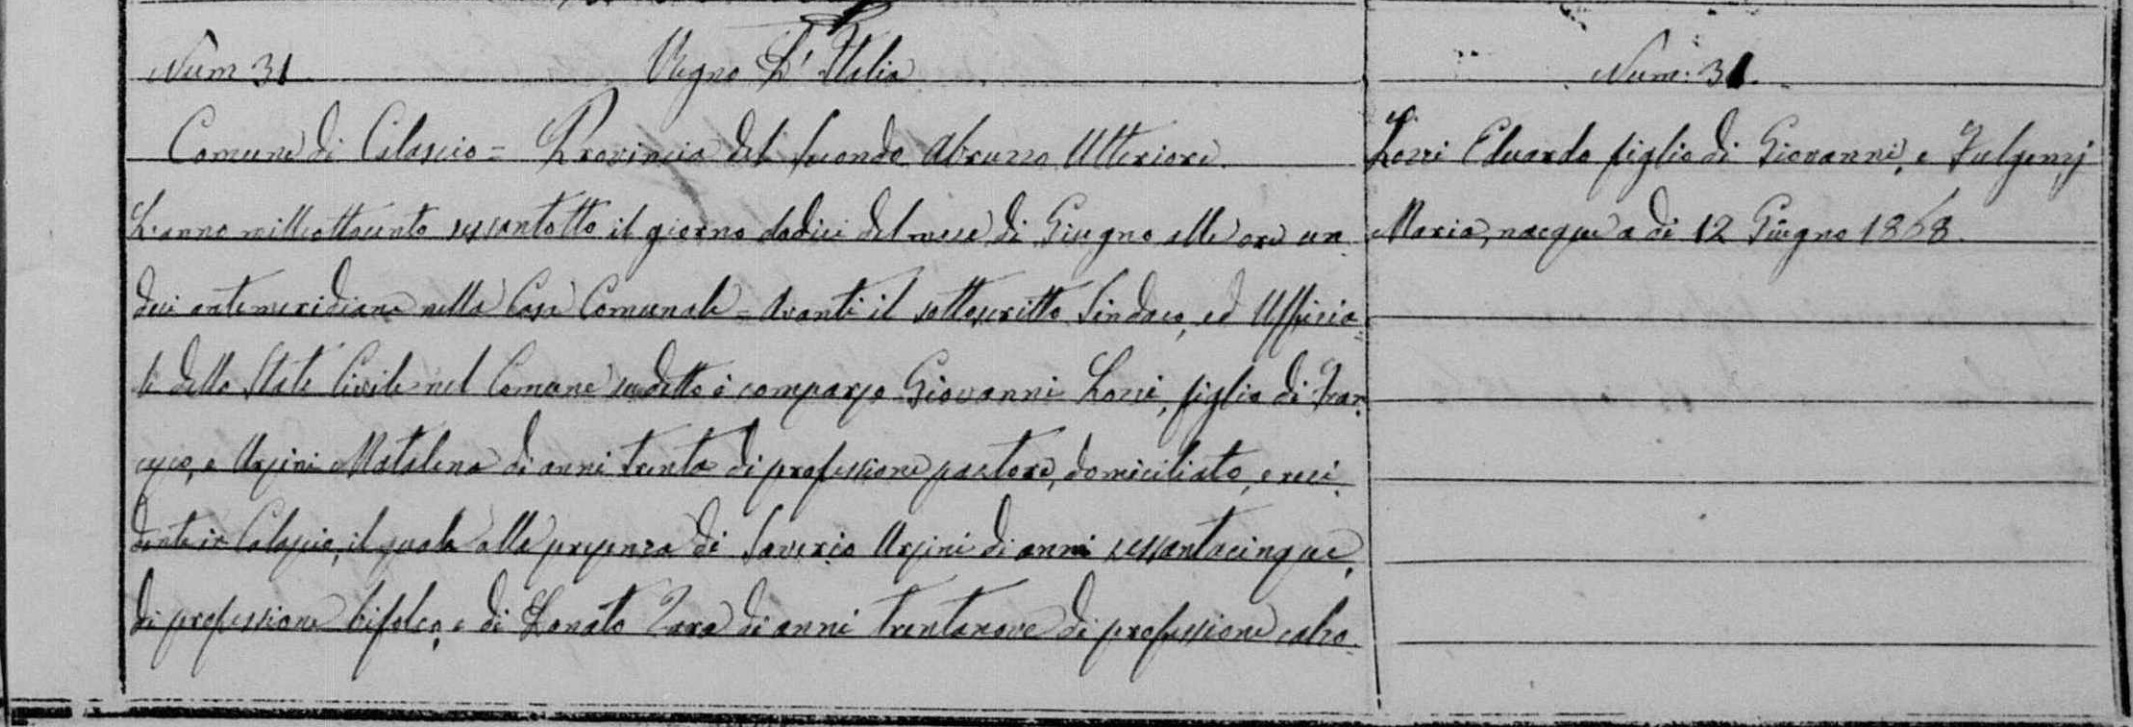 Num 31 Regno D'Italia
Comune di Calascio = Provincia del secondo Abruzzo Ulteriore.
L'anno milleottocento sessantotto il giorno dodici del mese di Giugno alle ore un
dici antemeridiane nella Casa Comunale = Avanti il sottoscritto Sindaco, edUfficia=
le dello Stato Civile nel Comune sudetto è comparso Giovanni Lozzi, figlio di Fran
cesco, e Ursini Matalena di anni trenta di professione pastore, domiciliato, e resi
dente in Calascio, il quale alla presenza di Saverio Ursini di anni sessantacinque,
di professione bifolco, e di Donato Zara di anni trentanove di professione calzo
Num: 31.
Lozzi Eduardo figlio di Giovanni, e Fulgenzj
Maria, nacque a dì 12 Giugno 1868.